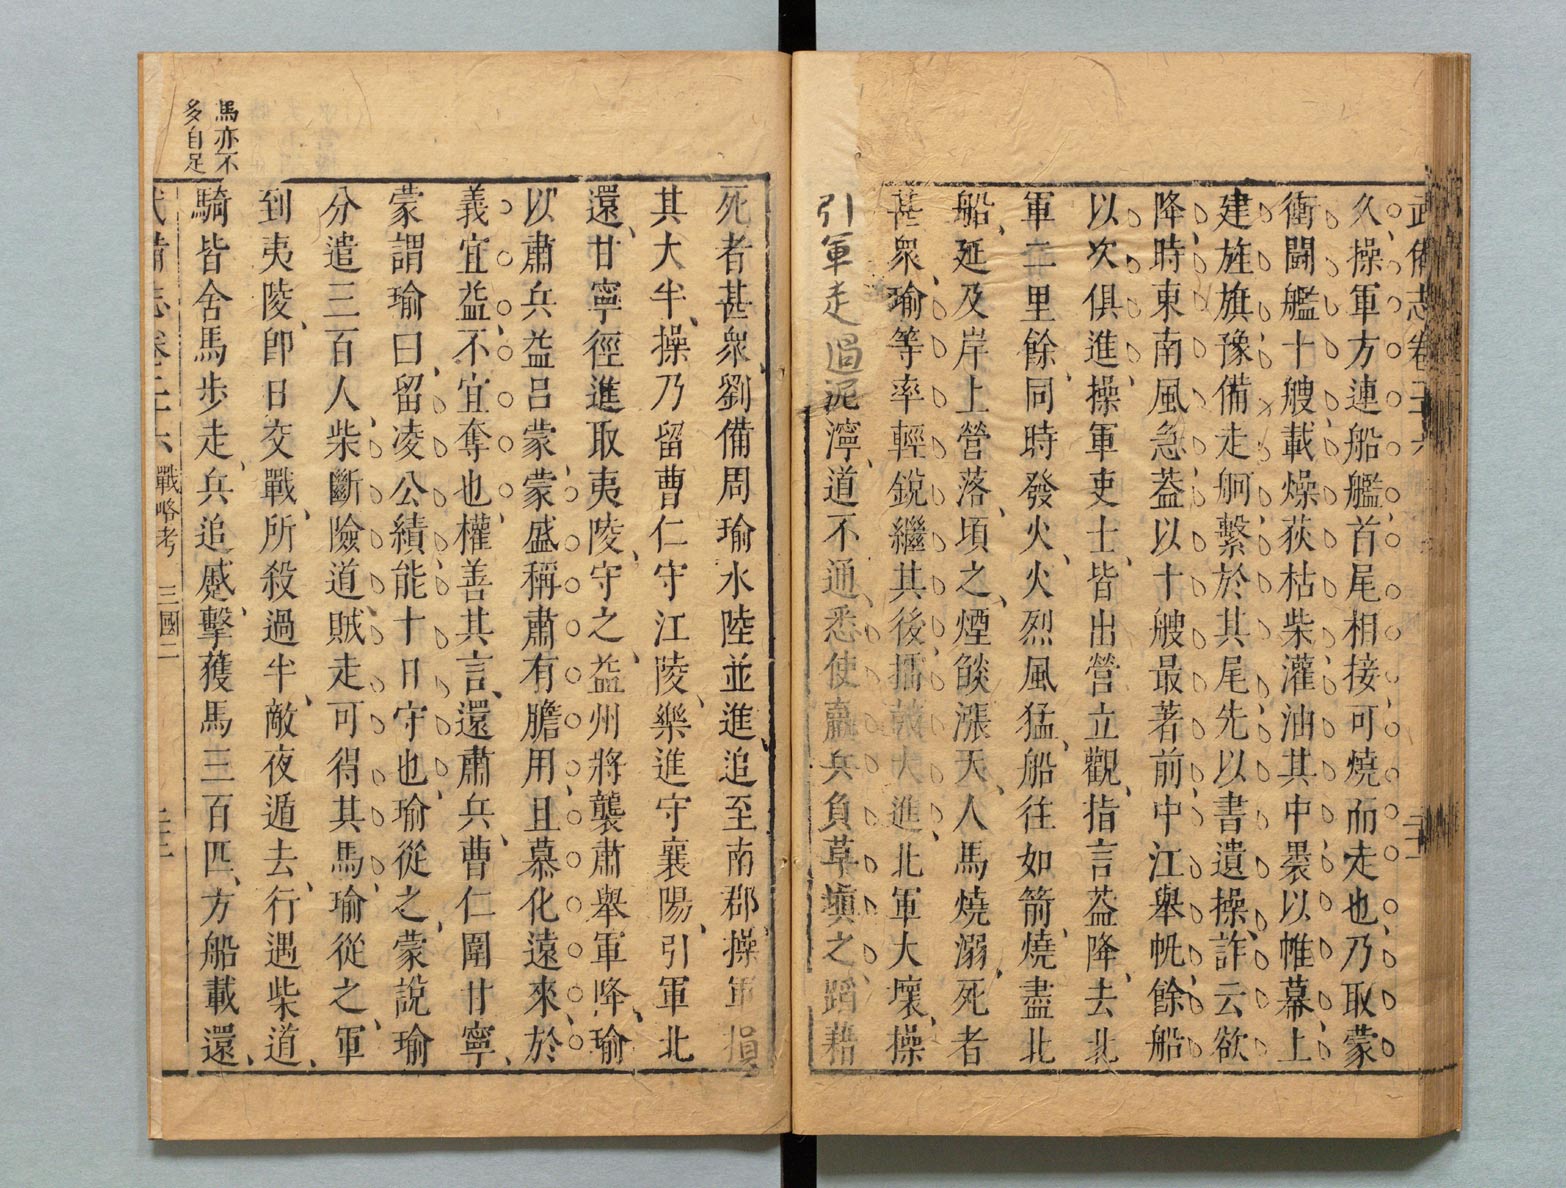 武備志卷二十六
久操軍方連船艦首尾相接可燒而走也乃取蒙
衝鬭艦十艘載燥荻枯柴灌油其中褁以帷幕上
建旌旗豫備走舸繫於其尾先以書遺操詐云欲
降時東南風急葢以十艘最著前中江舉帆餘船
以次俱進操軍吏士皆出營立觀指言葢降去北
軍二里餘同時發火火烈風猛船往如箭燒盡北
船延及岸上營落頃之煙燄漲天人馬燒溺死者
甚衆瑜等率輕銳繼其後擂鼓大進北軍大壞操
引軍走過泥濘道不通悉使羸兵負草塡之蹈藉
死者甚衆劉備周瑜水陸並進追至南郡操軍損
其大半操乃留曹仁守江陵樂進守襄陽引軍北
還甘寧徑進取夷陵守之益州將襲肅舉軍降瑜
以肅兵益呂蒙蒙盛稱肅有膽用且慕化遠來於
義宜益不宜奪也權善其言還肅兵曹仁圍甘寧
蒙謂瑜曰留凌公績能十日守也瑜從之蒙說瑜
分遣三百人柴斷險道賊走可得其馬瑜從之軍
到夷陵卽日交戰所殺過半敵夜遁去行遇柴道
騎皆舍馬步走兵追蹙擊獲馬三百匹方船載還
馬亦不
多自足
武備志卷二十六 戰略考 三國二 二十二